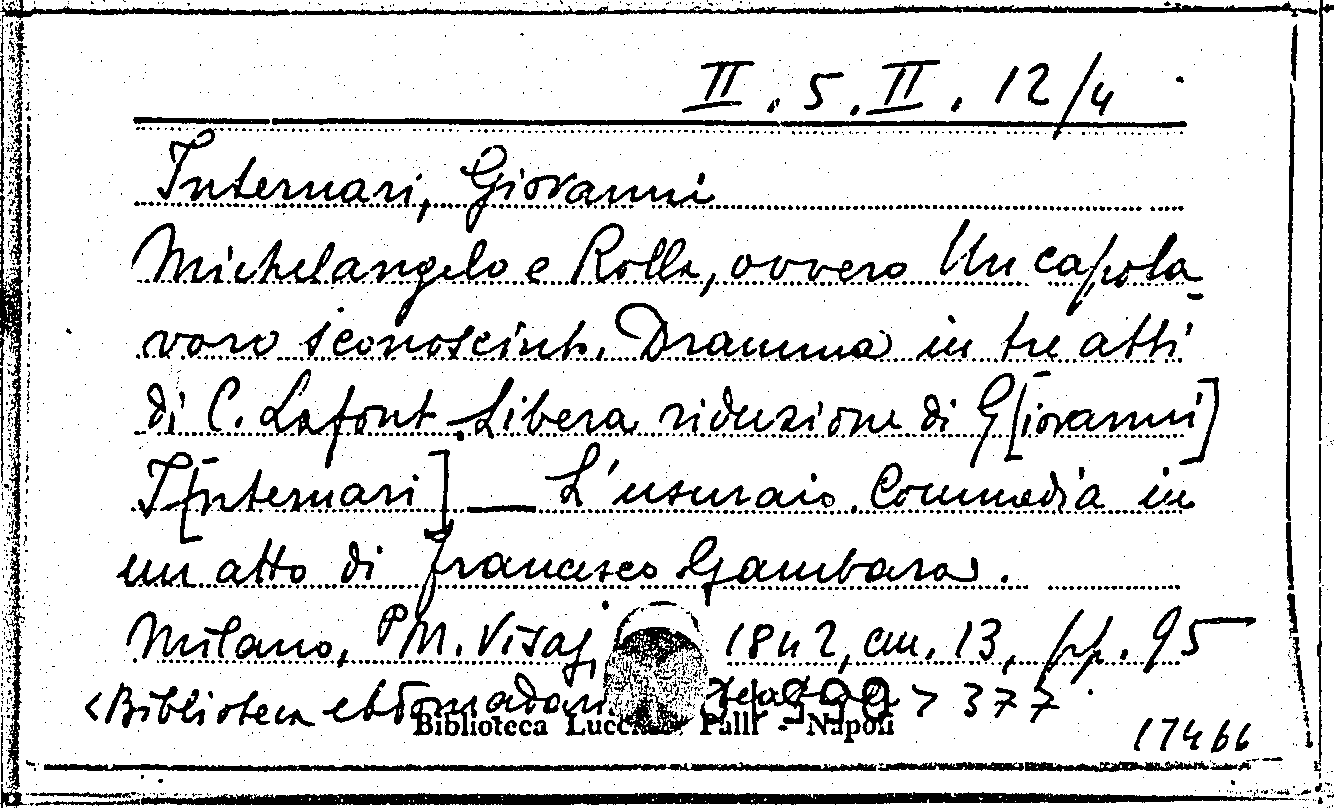 II. 5. II. 12/4
Internari, Giovanni
Michelangelo e Rolla, ovvero Un capola-
voro sconosciuto. Dramma in tre atti
di C. Lafont. Libera riduzione di G[iovanni]
I[nternari] — L'usuraio. Commedia in
un atto di Francesco Gambara.
Milano, P M. Visaj, 1842, cm. 13, pp. 95
<Biblioteca ebdomadaria > 377
Biblioteca Lucchesi Palli - Napoli
17466